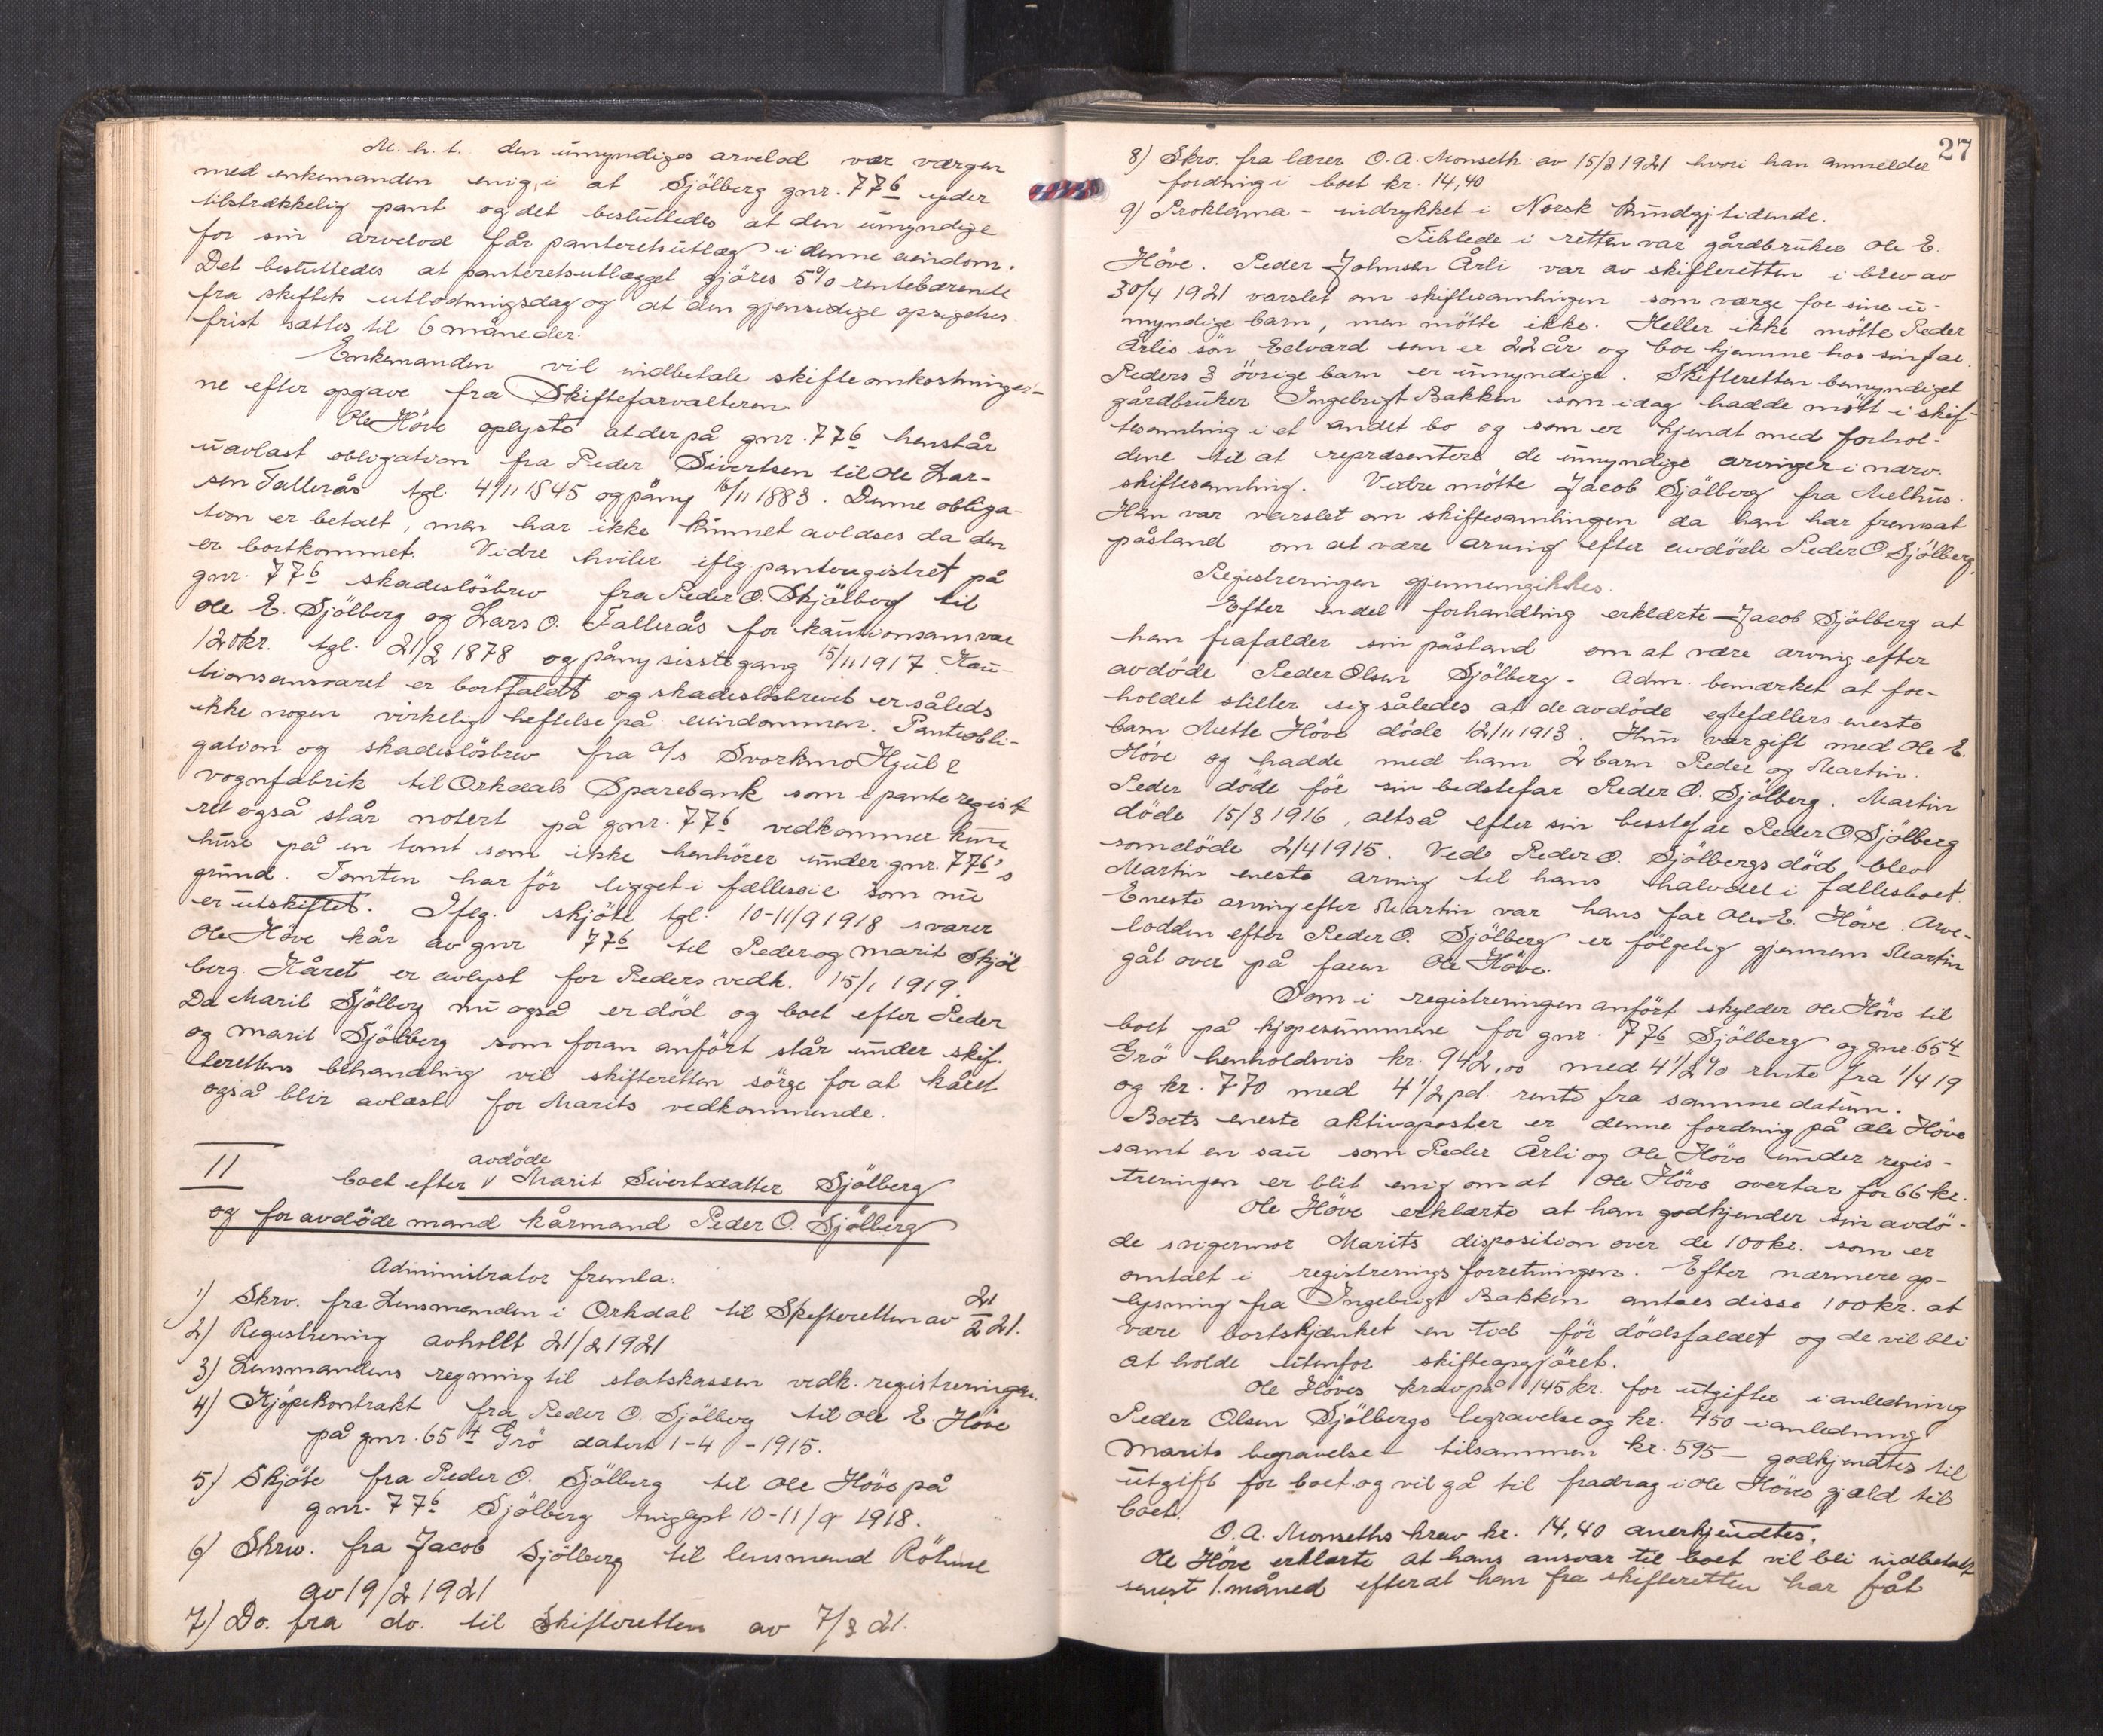 M. h. t. den umyndiges arvelod var værgen
med enkemanden enig i at Sjölberg gnr. 77 6 yder
tilstrækkelig pant og det besluttedes at den umyndige
for sin arvelod får panteretsutlæg i denne eiendom.
Det besluttedes at panteretsutlægget gjöres 5% rentebærende
fra skiftets utlodningsdag og at den gjensidige opsigelses
frist sættes til 6 måneder.
Enkemanden vil indbetale skifteomkostninger-
ne efter opgave fra Skifteforvalteren.
Ole Höve oplyste at der på gnr. 77 6 henstår
uavlæst obligation fra Peder Sivertsen til Ole Lar-
sen Fallerås tgl. 4/11 1845 og påny 16/11 1883. Denne obliga-
tion er betalt, men har ikke kunnet avlæses da den
er bortkommet. Videre hviler iflg. panteregistret på
gnr. 77 6 skadeslösbrev fra Peder O. Skjölberg til
Ole E. Sjölberg og Lars O. Fallerås for kautionsansvar
120 kr. tgl. 21/2 1878 og påny sisste gang 15/11 1917. Kau-
tionsansvaret er bortfaldt og skadeslösbrevet er således
ikke nogen virkelig heftelse på eiendommen. Panteobli-
gation og skadeslösbrev fra A/S Svorkmo Hjul &
vognfabrik til Orkdals Sparebank som i panteregist-
ret også står notert på gnr. 77 6 vedkommer kun
huse på en tomt som ikke henhörer under gnr. 77 6's
grund. Tomten har för ligget i fælleseie som nu
er utskiftet. Iflg. skjöte tgl. 10-11/9 1918 svarer
Ole Höve kår av gnr 77 6 til Peder og Marit Skjöl-
berg. Kåret er avlyst for Peders vedk. 15/1 1919.
Da Marit Sjölberg nu også er död og boet efter Peder
og Marit Sjölberg som foran anfört står under skif-
terettens behandling vil skifteretten sörge for at kåret
også blir avlæst for Marits vedkommende.
11
boet efter avdöde Marit Sivertsdatter Sjölberg
og foravdöde mand kårmand Peder O. Sjölberg
Administrator fremla:
1) Skrv. fra Lensmanden i Orkdal til Skifteretten av 21/2 21.
2) Registrering avholdt 21/2 1921
3) Lensmandens regning til statskassen vedk. registreringen.
4) Kjöpekontrakt fra Peder O. Sjölberg til Ole E. Höve
på gnr. 65 4 Grö datert 1-4-1915.
5) Skjöte fra Peder O. Sjölberg til Ole Höve på
gnr. 77 6 Sjölberg tinglyst 10-11/9 1918.
6) Skrv. fra Jacob Sjölberg til lensmand Röhme
av 19/2 1921
7) Do. fra do. til Skifteretten av 7/3 21.
27
8) Skrv. fra lærer O. A. Monseth av 15/3 1921 hvori han anmelder
fordring i boet kr. 14,40
9) Proklama - indrykket i Norsk Kundgj. tidende.
Tilstede i retten var gårdbruker Ole E.
Höve. Peder Johnsen Årli var av skifteretten i brev av
30/4 1921 varslet om skiftesamlingen som værge for sine u-
myndige barn, men mötte ikke. Heller ikke mötte Peder
Årlis sön Edvard som er 22 år og bor hjemme hos sin far.
Peders 3 övrige barn er umyndige. Skifteretten bemyndiget
gårdbruker Ingebrigt Bakken som idag hadde mött i skif-
tesamling i et andet bo og som er kjendt med forhol-
dene til at repræsentere de umyndige arvinger i nærv.
skiftesamling. Videre mötte Jacob Sjölberg fra Melhus.
Han var varslet om skiftesamlingen da han har fremsat
påstand om at være arving efter avdöde Peder O. Sjölberg.
Registreringen gjennemgikkes.
Efter endel forhandling erklærte Jacob Sjölberg at
han frafalder sin påstand om at være arving efter
avdöde Peder Olsen Sjölberg. Adm. bemerket at for-
holdet stiller sig således at de avdöde egtefællers eneste
barn Mette Höve döde 12/11 1913. Hun var gift med Ole E.
Höve og hadde med ham 2 barn Peder og Martin.
Peder döde för sin bedstefar Peder O. Sjölberg. Martin
döde 15/3 1916, altså efter sin besstefar Peder O. Sjölberg
som döde 2/4 1915. Ved Peder O. Sjölbergs död blev
Martin eneste arving til hans halvdel i fællesboet.
Eneste arving efter Martin var hans far Ole E. Höve. Arve-
lodden efter Peder O. Sjölberg er fölgelig gjennem Martin
gåt over på faren Ole Höve.
Som i registreringen anfört skylder Ole Höve til
boet på kjöpesummene for gnr. 77 6 Sjölberg og gnr. 65 4
Grö henholdsvis kr. 942,00 med 4 1/2 % rente fra 1/4 19
og kr. 770 med 4 1/2 pct. rente fra samme datum.
Boets eneste aktivaposter er denne fordring på Ole Höve
samt en sau som Peder Årli og Ole Höve under regis-
treringen er blit enig om at Ole Höve overtar for 66 kr.
Ole Höve erklærte at han godkjender sin avdö-
de svigermor Marits disposition over de 100 kr. som er
omtalt i registreringsforretningen. Efter nærmere op-
lysning fra Ingebrigt Bakken antaes disse 100 kr. at
være bortskjænket en tid för dödsfaldet og de vil bli
at holde utenfor skifteopgjöret.
Ole Höves krav på 145 kr. for utgifter i anledning
Peder Olsen Sjölbergs begravelse og kr. 450 i anledning
Marits begravelse - tilsammen kr. 595 - godkjendtes til
utgift for boet og vil gå til fradrag i Ole Höves gjæld til
boet.
O. A. Monseths krav kr. 14,40 anerkjendtes.
Ole Höve erklærte at hans ansvar til boet vil bli indbetalt
senest 1. måned efterat han fra skifteretten har fåt